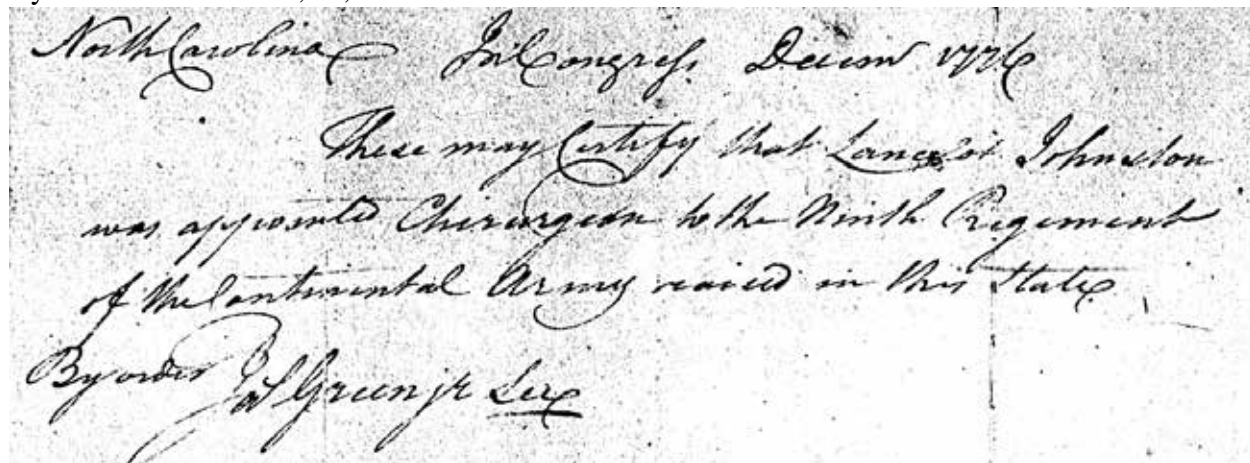 North Carolina In Congress Decemr 1776
These may Certify that Lancelot Johnston
was appointed Chirurgeon to the Ninth Regiment
of the Continental Army raised in this State
By order Jas Green jr Secy